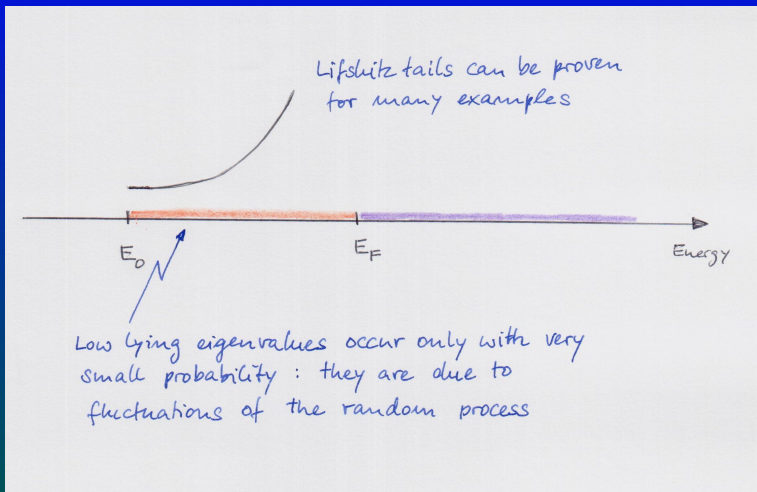 Lifshitz tails can be proven
for many examples
E₀
E_F
Energy
Low lying eigenvalues occur only with very
small probability : they are due to
fluctuations of the random process